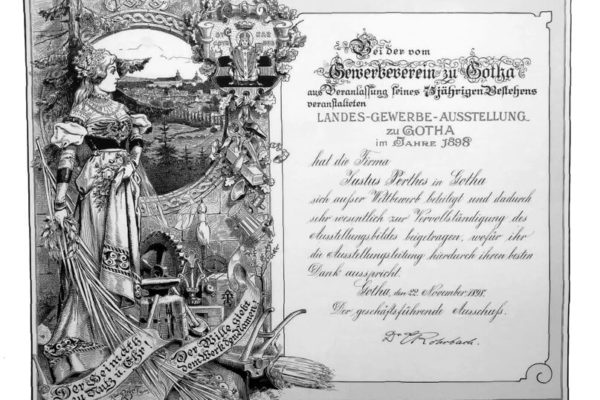 Bei der vom
Gewerbeverein zu Gotha
aus Veranlassung seines 75jährigen Bestehens
veranstalteten
LANDES-GEWERBE-AUSSTELLUNG
ZU GOTHA
IM JAHRE 1898
hat die Firma
Justus Perthes in Gotha
sich außer Wettbewerb beteiligt und dadurch
sehr wesentlich zur Vervollständigung des
Ausstellungsbildes beigetragen, wofür ihr
die Ausstellungsleitung hierdurch ihren besten
Dank ausspricht.
Gotha, den 22. November 1898.
Der geschäftsführende Ausschuß.
Dr. Rohrbach.
Der Heimath
zu Nutz u. Ehr!
Der Müh' lohnt